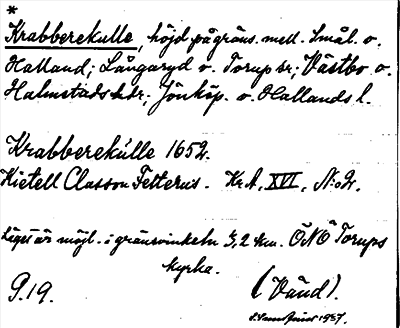 *
Krabberekulle, höjd på gräns. mell. Smål. o.
Halland; Långaryd o. Torup sr; Västbo o.
Halmstads hdr; Jönköp. o. Hallands l.
Krabberekúlle 1652.
Kietell Classon Felterus. Kr.A, XVI, N:o 2.
Läget är möjl. i gränsvinkeln 5,2 km. ÖNÖ Torups
kyrka.
P. 19. (Vänd).